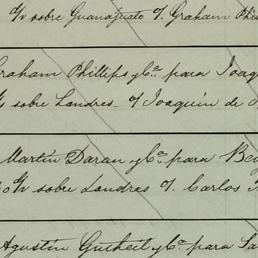 G/ sobre Guanajuato o/ Graham Phi
Graham Phillips y Ca. para Joaq
G/ sobre Londres o/ Joaquin de
Martin Daran y Ca. para Be
G/ sobre Londres o/ Carlos
Agustin Gutheil y Ca. para Sa